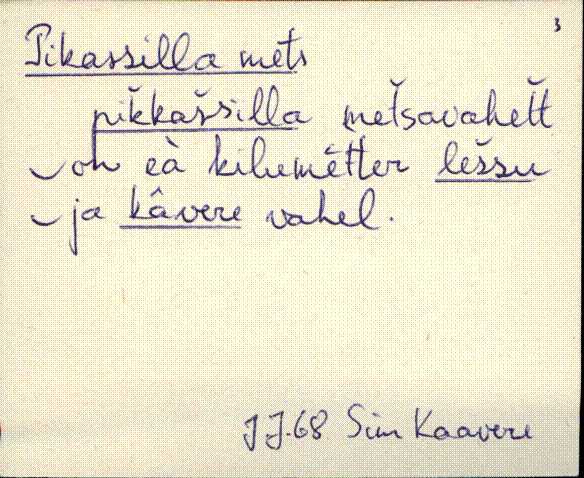 3
Pikassilla mets
pĭkkašsilla mĕtsavahelt
‿on eà kilumĕtter lĕšsu
‿ja kâvere vahel.
J J.68 Sim Kaavere